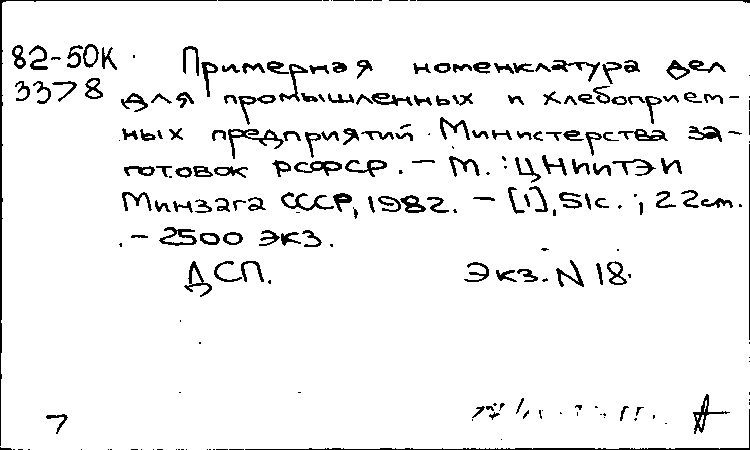 82-50К Примерная номенклатура дел
3378 для промышленных и хлебоприем-
ных предприятий Министерства за-
готовок РСФСР. – М. : ЦНИИТЭИ
Минзага СССР, 1982. – [1], 51с. ; 22см.
. – 2500 экз.
ДСП. Экз. N 18.
7